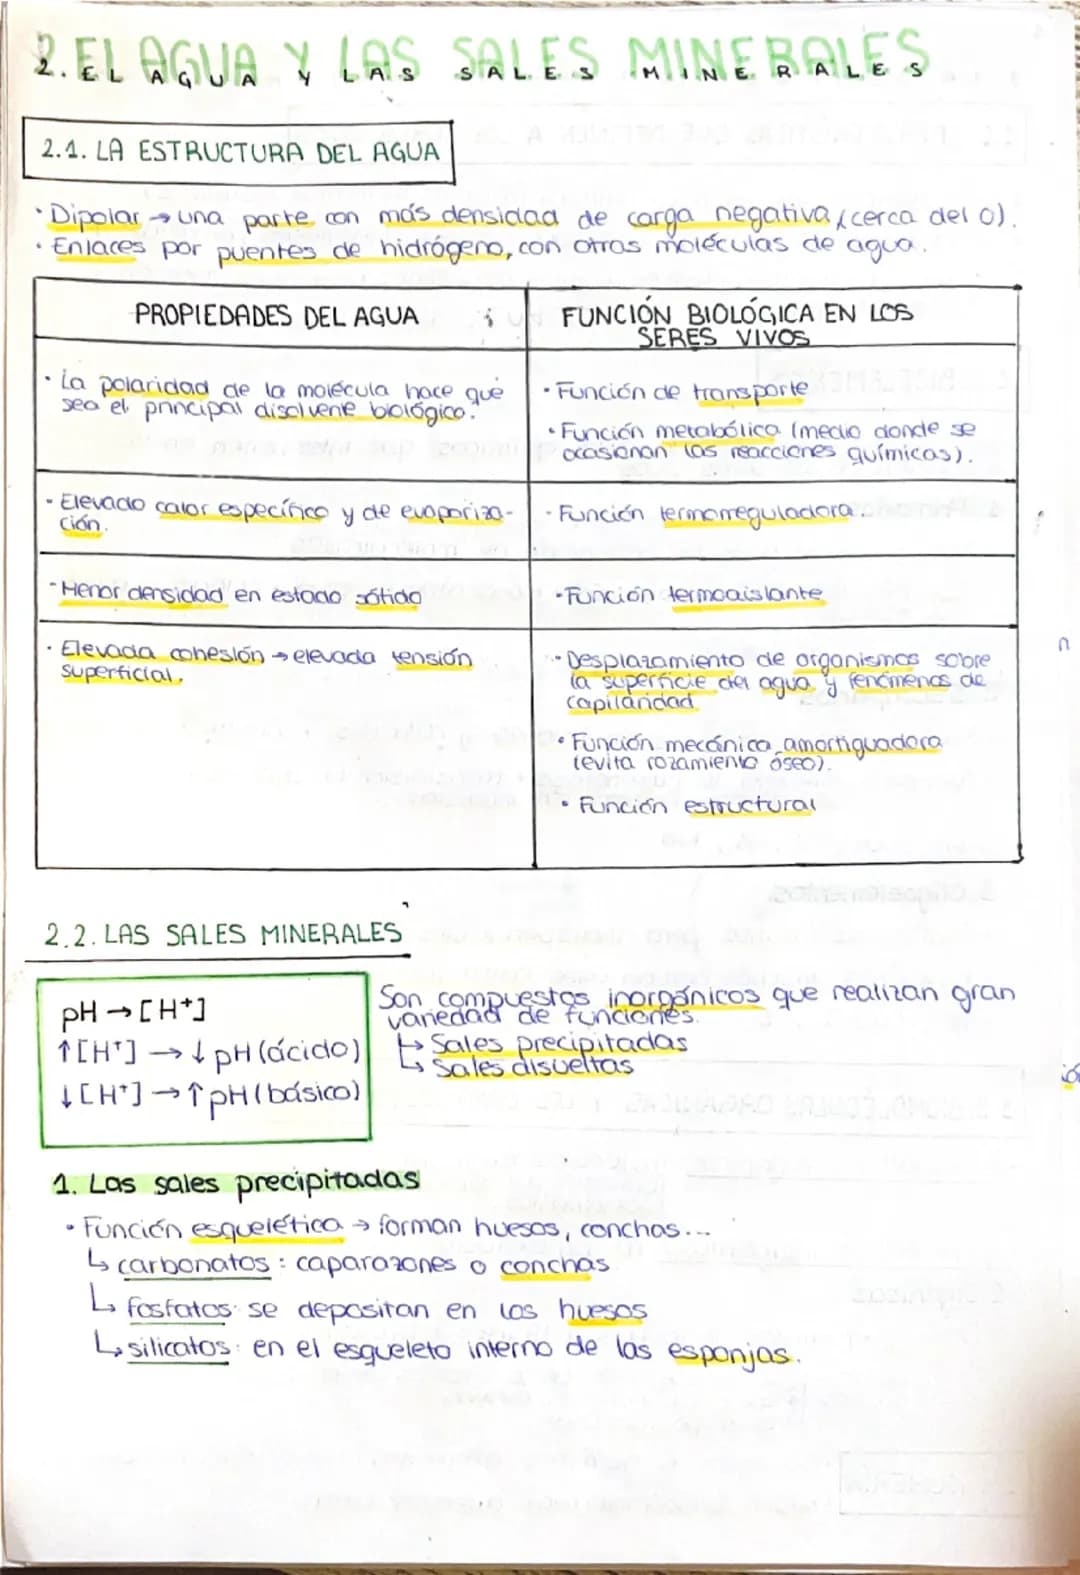 2. EL AGUA Y LAS SALES MINERALES
2.1. LA ESTRUCTURA DEL AGUA
· Dipolar → una parte con más densidad de carga negativa (cerca del O).
· Enlaces por puentes de hidrógeno, con otras moléculas de agua.
PROPIEDADES DEL AGUA
FUNCIÓN BIOLÓGICA EN LOS
SERES VIVOS
· La polaridad de la molécula hace que
sea el principal disolvente biológico.
· Función de transporte
· Función metabólica (medio donde se
ocasionan las reacciones químicas).
· Elevado calor específico y de evaporiza-
ción.
· Función termorreguladora.
· Menor densidad en estado sólido
· Función termoaislante
· Elevada cohesión → elevada tensión
superficial.
· Desplazamiento de organismos sobre
la superficie del agua y fenómenos de
capilaridad
· Función mecánica amortiguadora
(evita rozamiento óseo).
· Función estructural
2.2. LAS SALES MINERALES
pH → [H⁺]
↑[H⁺] → ↓ pH (ácido)
↓[H⁺] → ↑ pH (básico)
Son compuestos inorgánicos que realizan gran
variedad de funciones.
↳ Sales precipitadas
↳ Sales disueltas
1. Las sales precipitadas
· Función esquelética → forman huesos, conchas...
↳ carbonatos: caparazones o conchas
↳ fosfatos: se depositan en los huesos
↳ silicatos: en el esqueleto interno de las esponjas.